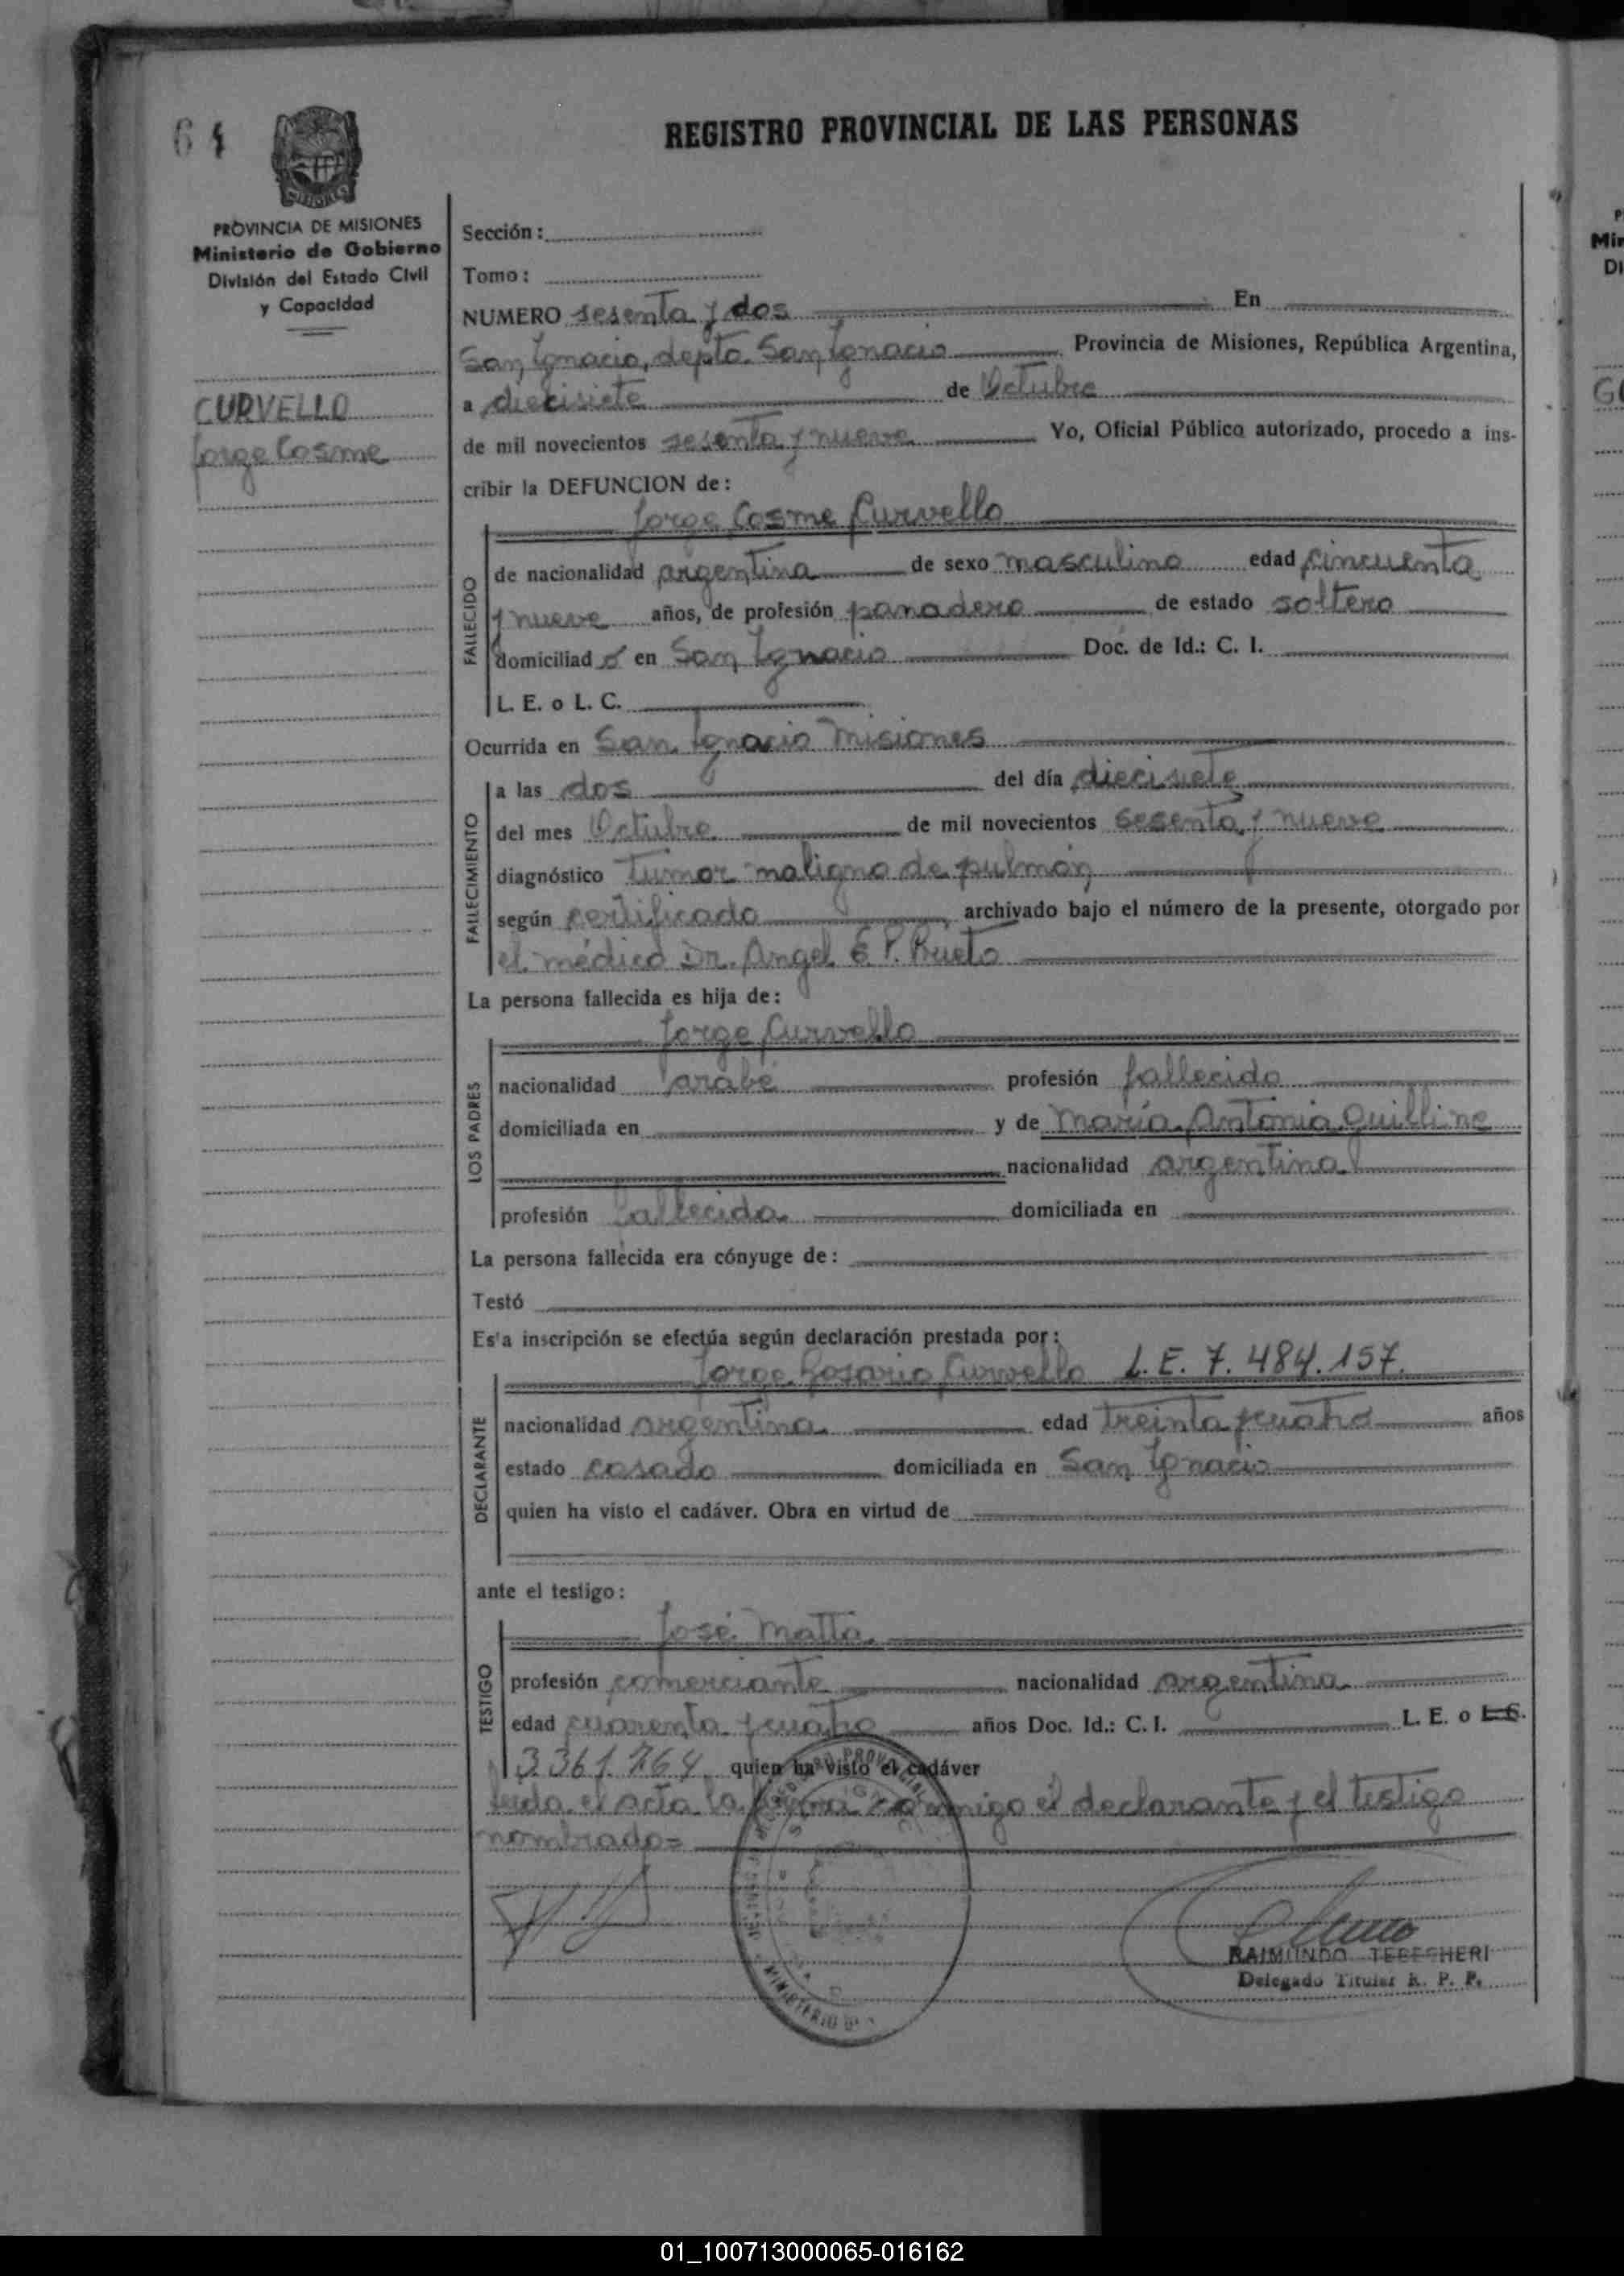 REGISTRO PROVINCIAL DE LAS PERSONAS
MISIONES
PROVINCIA DE MISIONES
Ministerio de Gobierno
División del Estado Civil
y Capacidad
CURVELLO
Jorge Cosme
Sección:
Tomo:
NUMERO sesenta y dos En
San Ignacio, depto. San Ignacio Provincia de Misiones, República Argentina,
a diecisiete de Octubre
de mil novecientos sesenta y nueve Yo, Oficial Público autorizado, procedo a ins-
cribir la DEFUNCION de:
Jorge Cosme Curvello
FALLECIDO
de nacionalidad argentina de sexo masculino edad cincuenta
y nueve años, de profesión panadero de estado soltero
domiciliad o en San Ignacio Doc. de Id.: C. I.
L. E. o L. C.
Ocurrida en San Ignacio Misiones
FALLECIMIENTO
a las dos del día diecisiete
del mes Octubre de mil novecientos sesenta y nueve
diagnóstico Tumor maligno de pulmón
según certificado archivado bajo el número de la presente, otorgado por
el médico Dr. Angel E. P.
La persona fallecida es hija de:
Jorge Curvello
LOS PADRES
nacionalidad arabe profesión fallecido
domiciliada en y de María Antonia
nacionalidad argentina
profesión fallecida domiciliada en
La persona fallecida era cónyuge de:
Testó
Es'a inscripción se efectúa según declaración prestada por:
Jorge Rosario Curvello L. E. 7.484.157.
DECLARANTE
nacionalidad argentina edad treinta y cuatro años
estado casado domiciliada en San Ignacio
quien ha visto el cadáver. Obra en virtud de
ante el testigo:
José Matta
TESTIGO
profesión comerciante nacionalidad argentina
edad cuarenta y cuatro años Doc. Id.: C. I. L. E. o L.C.
3361764 quien ha visto el cadáver
leida el acta la firma conmigo el declarante y el testigo
nombrado=
RAIMUNDO
Delegado Titular R. P. P.
01_100713000065-016162